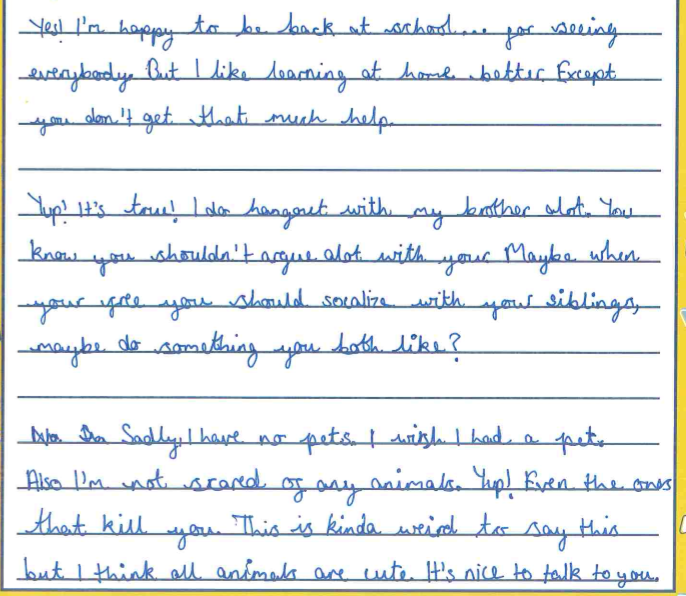 Yes! I'm happy to be back at school... for seeing
everybody. But I like learning at home better. Except
you don't get that much help.
Yup! It's true! I do hangout with my brother alot. You
know you shouldn't argue alot with your Maybe when
your free you should socalize with your siblings,
maybe do something you both like?
Sadlly, I have no pets. I wish I had a pet.
Also I'm not scared of any animals. Yup! Even the ones
that kill you. This is kinda weird to say this
but I think all animals are cute. It's nice to talk to you.